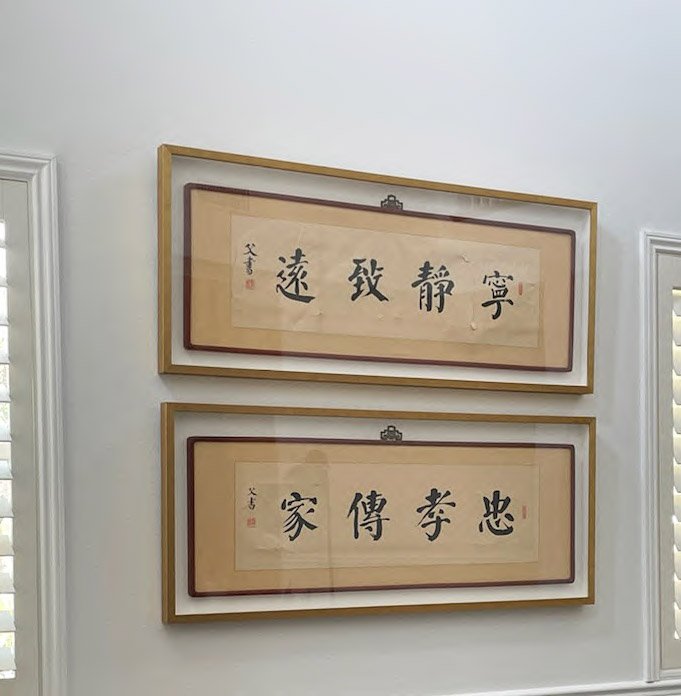 寧靜致遠
父書
忠孝傳家
父書